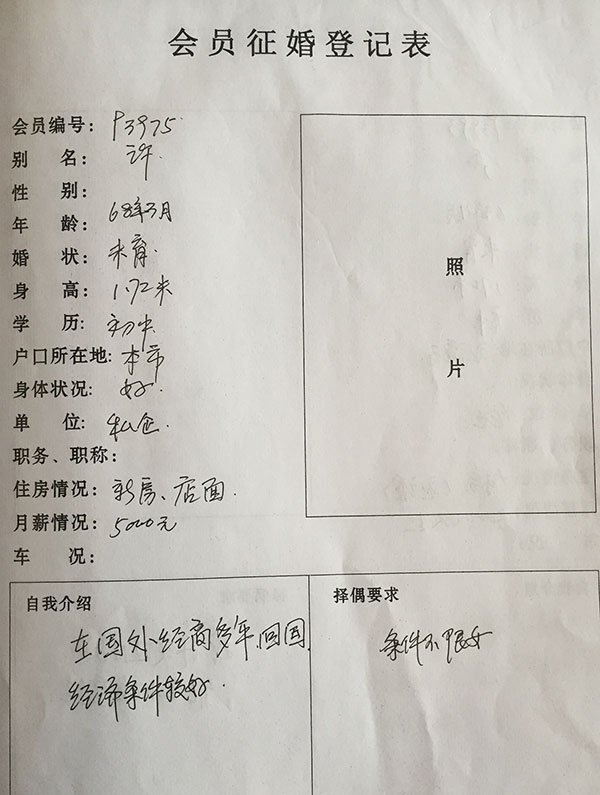 会员征婚登记表
会员编号：P3975
别 名：许
性 别：
年 龄：68年3月
婚 状：未育.
身 高：1.72米
学 历：初中
户口所在地：本市
身体状况：好
单 位：私企.
职务、职称：
住房情况：新房、店面.
月薪情况：5000元
车 况：
照
片
自我介绍
在国外经商多年,回国,
经济条件较好.
择偶要求
条件不限